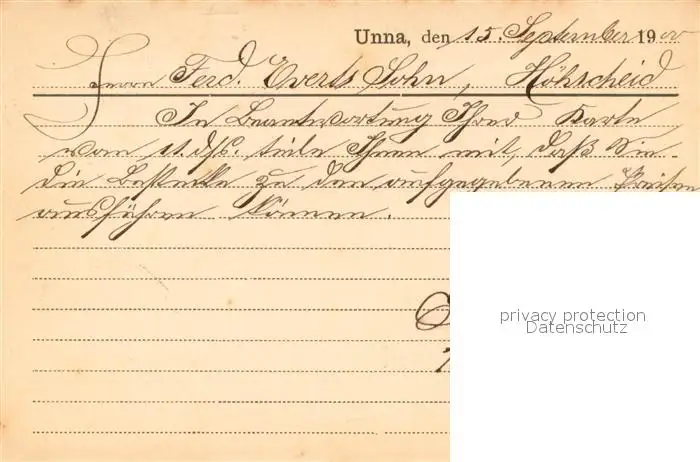 Unna, den 15. September 1900
Herrn Ferd. Everts Sohn, Höhscheid
In Beantwortung Ihrer Karte
vom 11. dss. teile Ihnen mit, daß Sie
die Bestecke zu den aufgegebenen Preisen
ausführen können.
privacy protection
Datenschutz